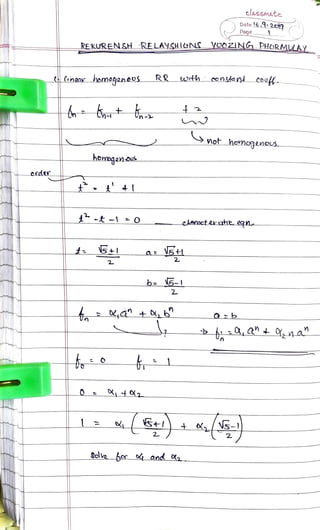 classmate
Date 16.9.2017
Page 1
REKURENSH RELAYSHIONS YOOZING PHORMULAY
1. Linear homogeneous RR with constant coeff.
fn = fn-1 + fn-2 + 2
not homogenous
homogenous
order
t² = t¹ + 1
t² - t - 1 = 0 — characteristic eqn.
t = √5+1 / 2 a = √5+1 / 2
b = √5-1 / 2
fn = α₁aⁿ + α₂bⁿ a = b
⇒ fn = α₁aⁿ + α₂naⁿ
f₀ = 0 f₁ = 1
0 = α₁ + α₂
1 = α₁ (√5+1 / 2) + α₂ (√5-1 / 2)
Solve for α₁ and α₂.